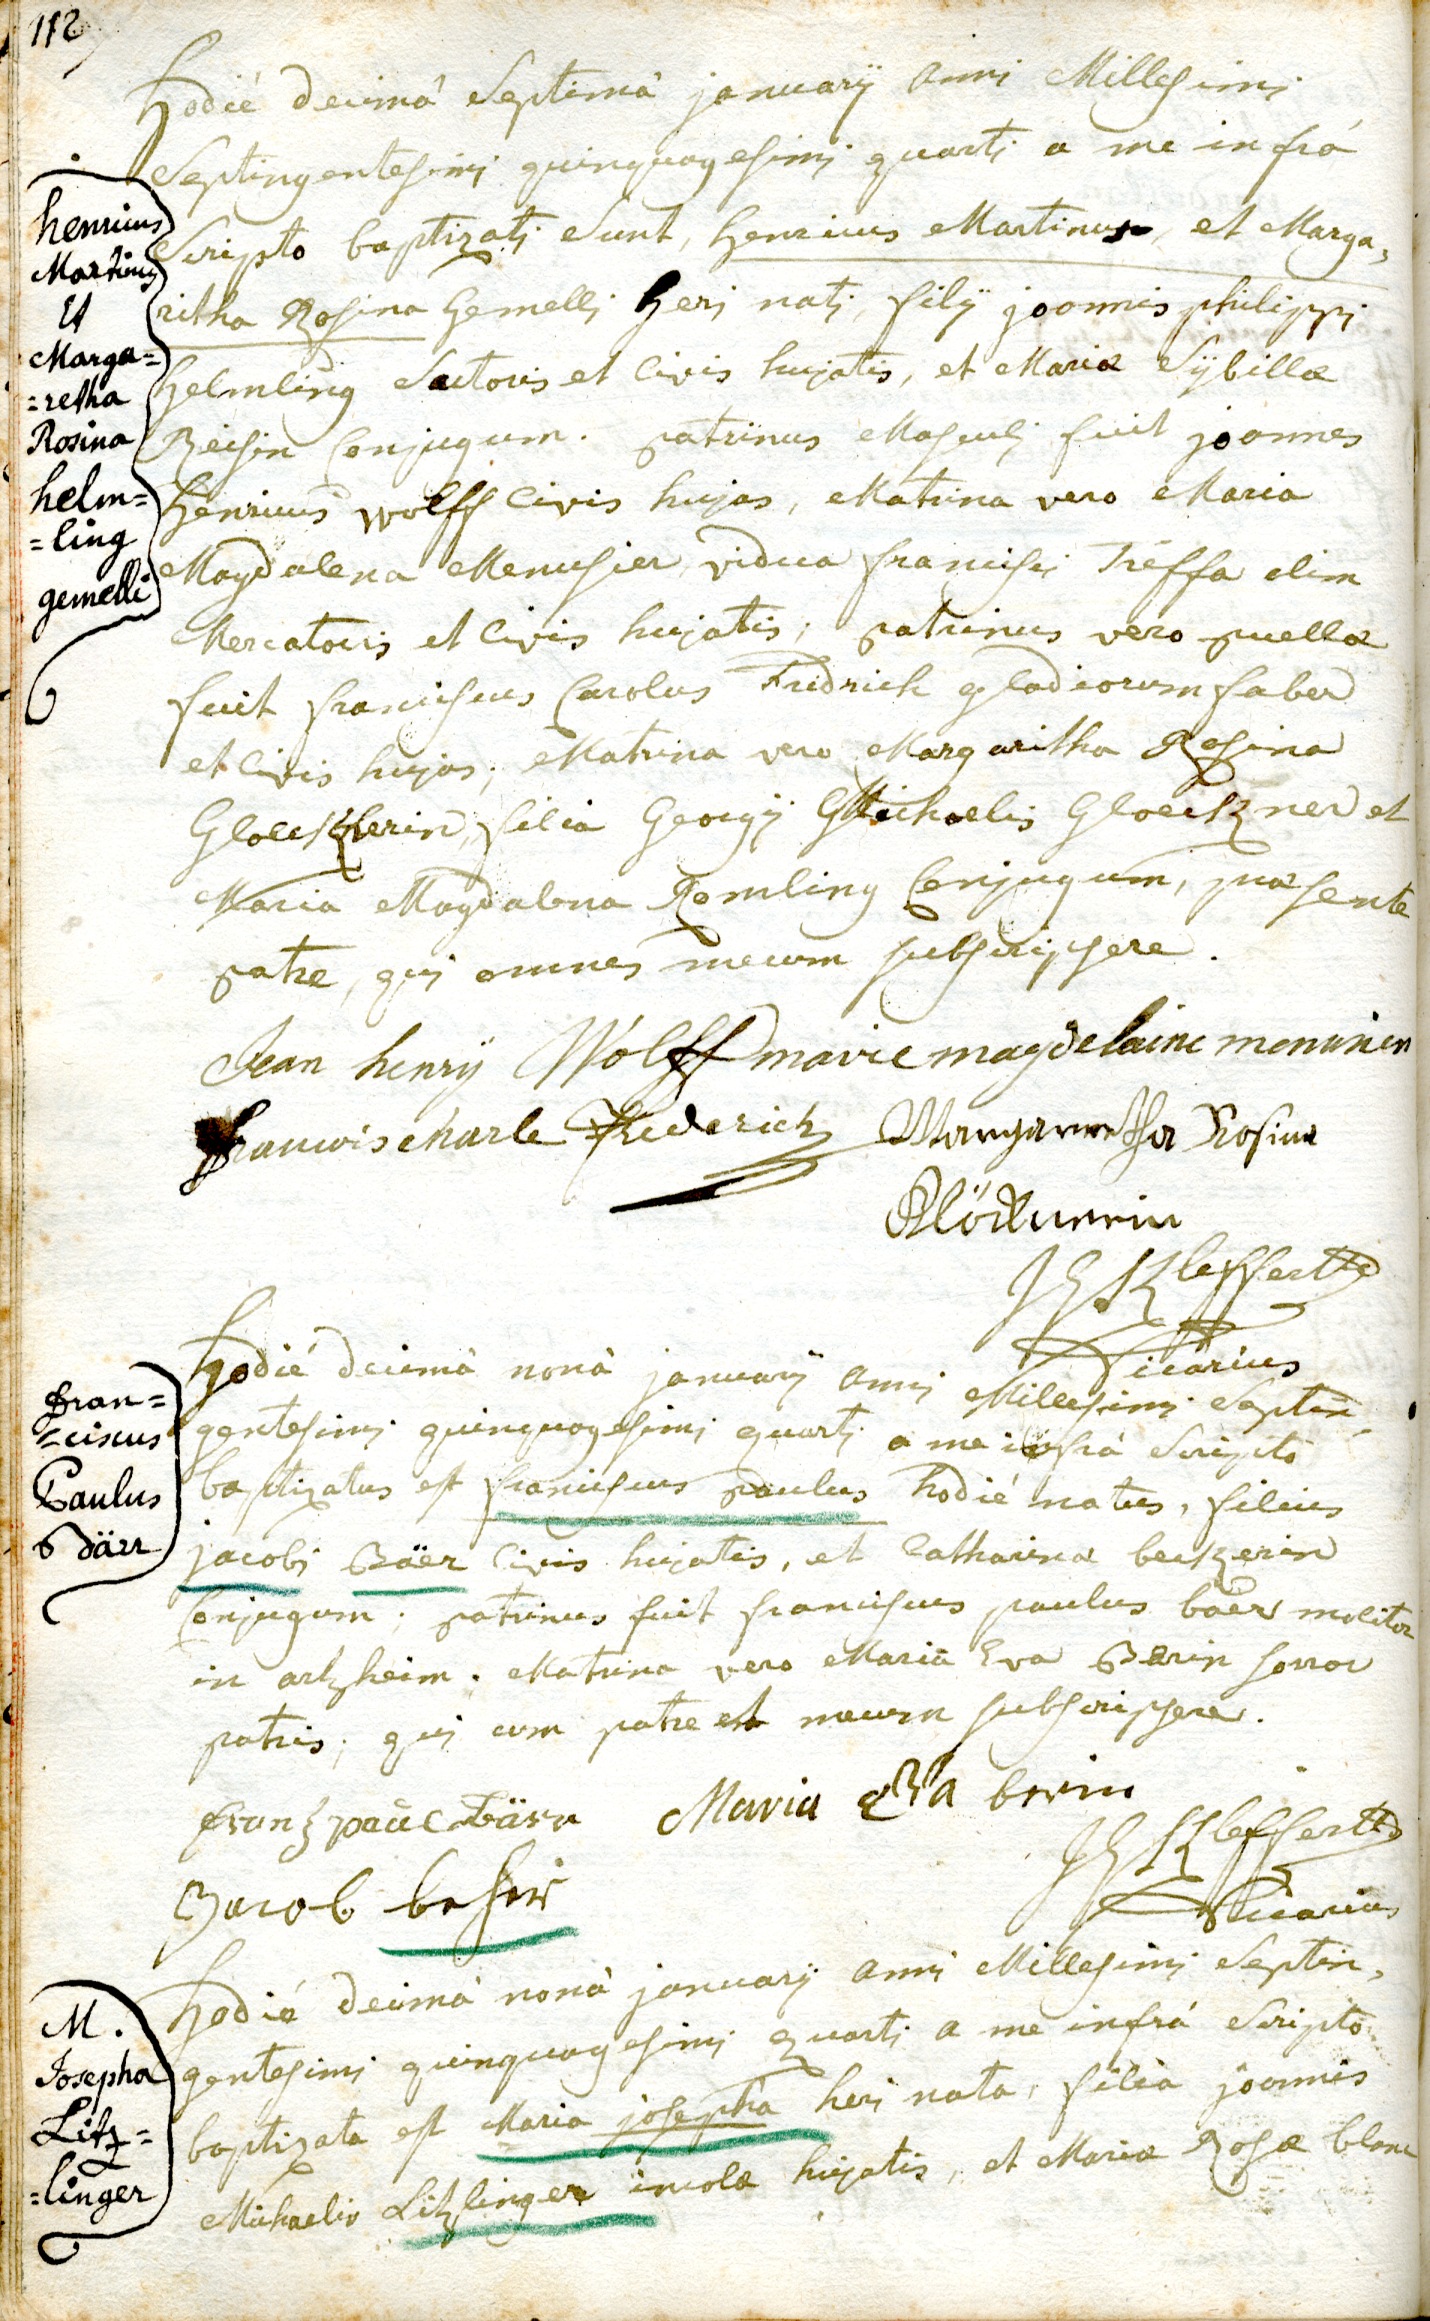 112
Hodié decimâ Septimâ january anni Millesimi
Septingentesimi quinquagesimi quarti a me infrá
Scripto baptizati Sunt, Henricus Martinus, et Marga,
ritha Rosina Gemelli heri nati, filÿ joannis philippi
Helmling Sartoris et Civis hujatis, et Mariæ Sÿbillæ
Reisin Conjugum. patrinus Masculi fuit joannes
Henricus Wolff Civis hujas, Matrina vero Maria
Magdalena Menusier vidua francisci Treffa olim
Mercatoris et Civis hujatis; patrinus vero puellæ
fuit franciscus Carolus Fridrich gladiorum faber
et Civis hujas; Matrina vero Margaritha Rosina
Glöcknerin, filia Georgÿ Michaelis Gloeckner et
Maria Magdalena Remling Conjugum, præsente
patre, qui omnes mecum subscripsere.
henricus
Martinus
Et
Marga=
=retha
Rosina
helm=
=ling
gemelli
Jean henrÿ Wolff marie magdelaine
francois charle Frederich Margaretha Rosina
Klöcknerin
Kleffert
Vicarius
Hodié decimâ nonâ januarÿ anni Millesimi Septin,
gentesimi quinquagesimi quarti a me infrá Scripto
baptizatus est franciscus paulus hodié natus, filius
jacobi Bäer Civis hujatis, et Catharinæ beckerin
Conjugum; patrinus fuit franciscus paulus baër molitor
in artzheim. Matrina vero Maria Eva Berin soror
patris; qui cum patre et mecum subscripsere.
fran=
=ciscus
Paulus
Bärr
frantz paul bärr Maria Eva berin
Kleffert
Jacob
Vicarius
Hodié decimâ nonâ januarÿ anni Millesimi Septin,
gentesimi quinquagesimi quarti a me infrá Scripto
baptizata est Maria josepha heri nata, filia joannis
Michaelis Litzlinger incolæ hujatis, et Mariæ Rosæ blanc
M.
Josepha
Litz=
=linger